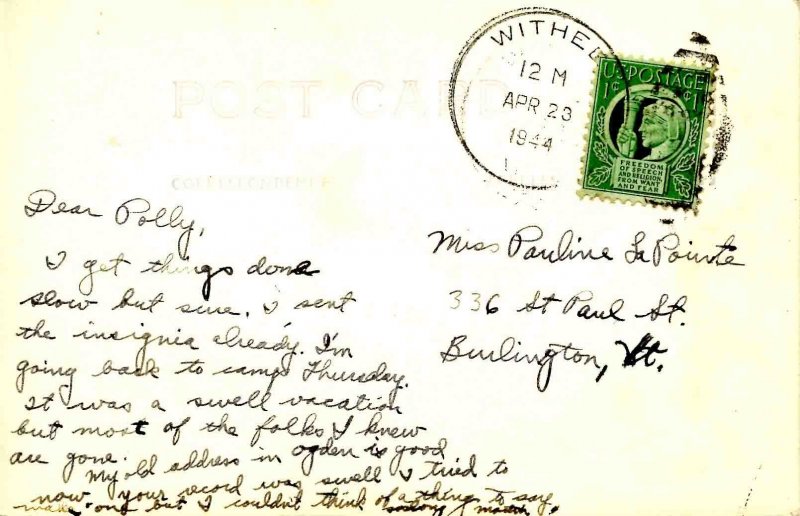 POST CARD
CORRESPONDENCE
WITHE
12 M
APR 23
1944
U.S. POSTAGE
1¢ 1¢
FREEDOM
OF SPEECH
AND RELIGION,
FROM WANT
AND FEAR
Dear Polly,
I get things done
slow but sure. I sent
the insignia already. I'm
going back to camp Thursday.
It was a swell vacation
but most of the folks I knew
are gone.
My old address in ogden is good
now your record was swell I tried to
make one but I couldn't think of a thing to say.
Miss Pauline LaPointe
336 St Paul St.
Burlington, Vt.